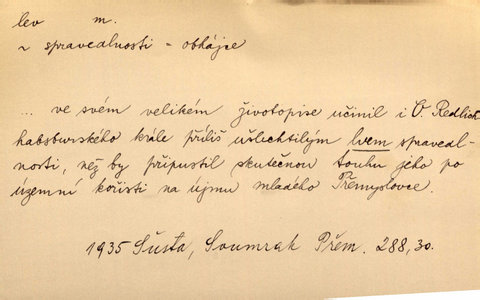 lev m.
~ spravedlnosti = obhájce
... ve svém velikém životopise učinil i O. Redlich
habsburského krále příliš ušlechtilým lvem spravedl-
nosti, než by připustil skutečnou touhu jeho po
územní kořisti na újmu mladého Přemyslovce.
1935 Šusta, Soumrak Přem. 288,30.